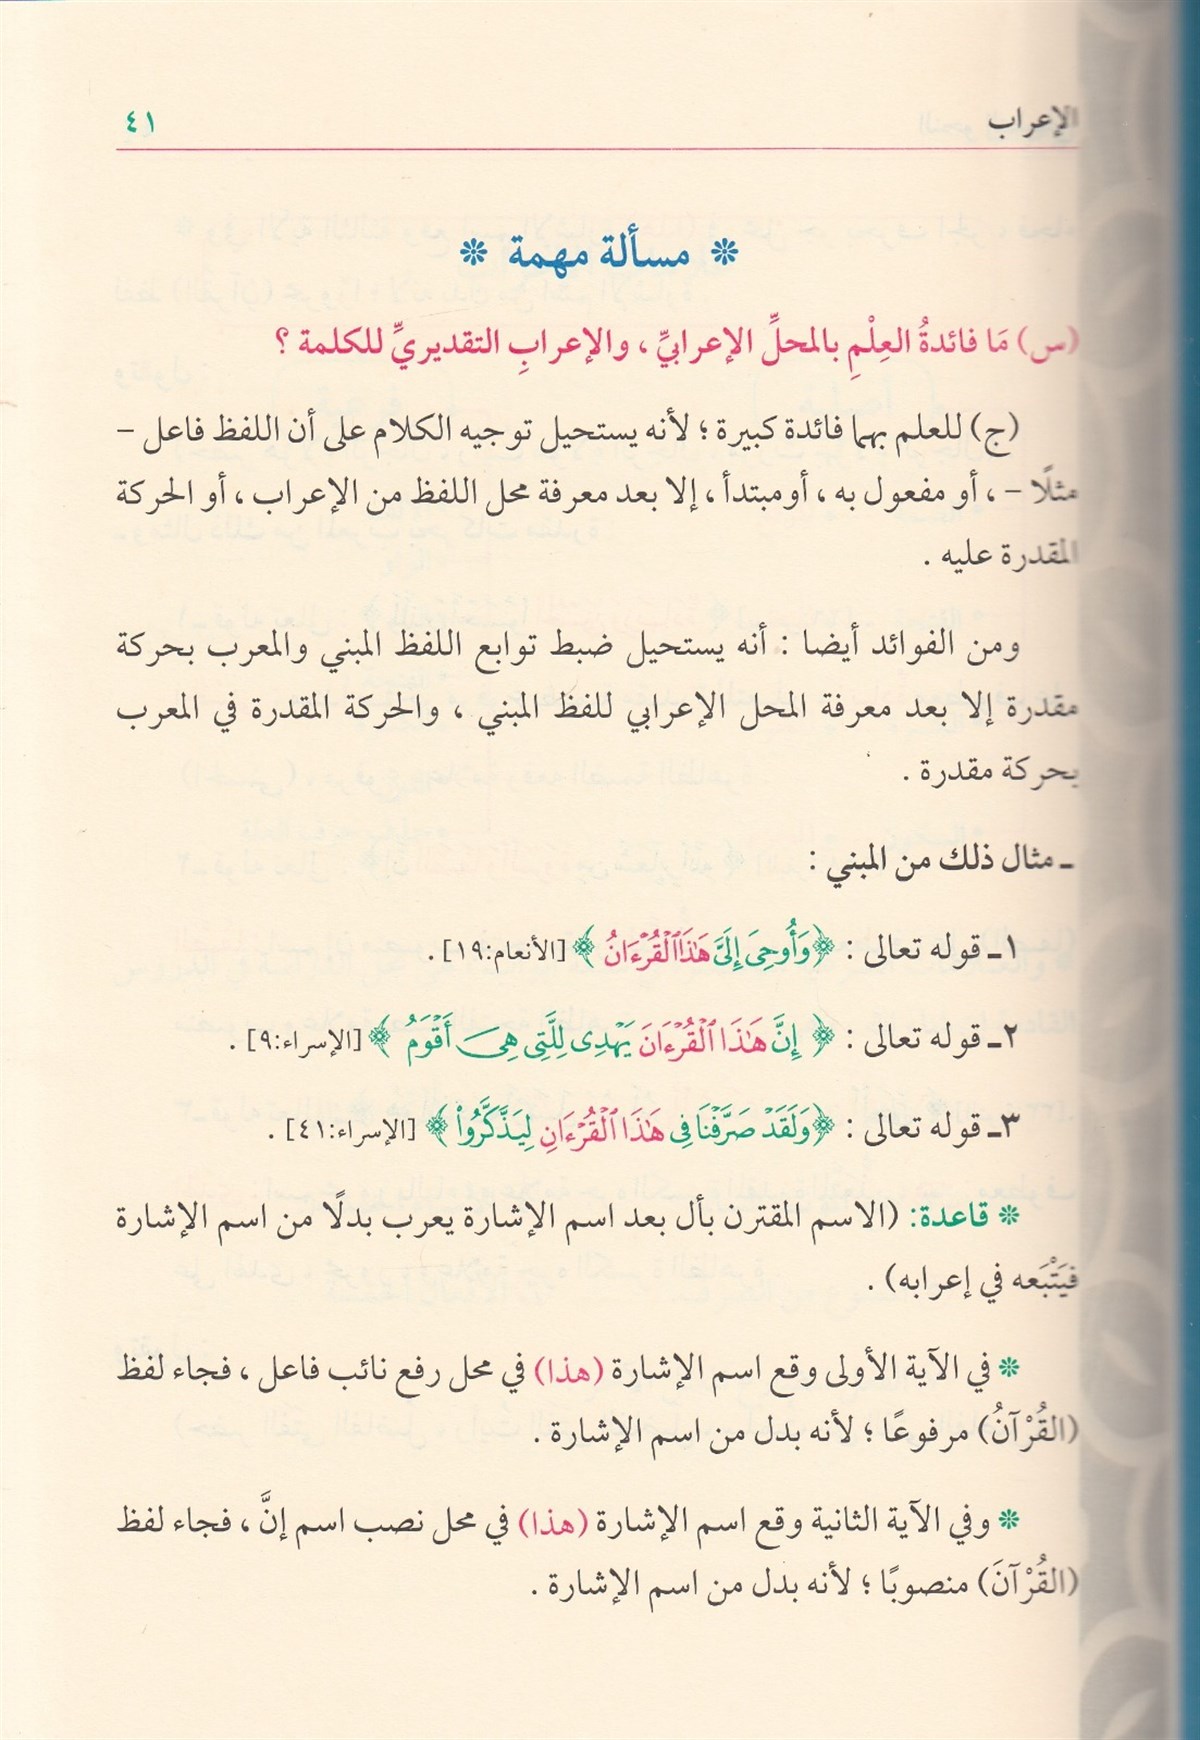 الإعراب ٤١
❊ مسألة مهمة ❊
(س) مَا فائدةُ العِلْمِ بالمحلِّ الإعرابيِّ ، والإعرابِ التقديريِّ للكلمة ؟
(ج) للعلم بهما فائدة كبيرة ؛ لأنه يستحيل توجيه الكلام على أن اللفظ فاعل –
مثلًا – ، أو مفعول به ، أومبتدأ ، إلا بعد معرفة محل اللفظ من الإعراب ، أو الحركة
المقدرة عليه .
ومن الفوائد أيضا : أنه يستحيل ضبط توابع اللفظ المبني والمعرب بحركة
مقدرة إلا بعد معرفة المحل الإعرابي للفظ المبني ، والحركة المقدرة في المعرب
بحركة مقدرة .
ـ مثال ذلك من المبني :
١ـ قوله تعالى : ﴿وَأُوحِىَ إِلَىَّ هَٰذَا ٱلْقُرْءَانُ ﴾ [الأنعام:١٩] .
٢ـ قوله تعالى : ﴿ إِنَّ هَٰذَا ٱلْقُرْءَانَ يَهْدِى لِلَّتِى هِىَ أَقْوَمُ ﴾ [الإسراء:٩] .
٣ـ قوله تعالى : ﴿وَلَقَدْ صَرَّفْنَا فِى هَٰذَا ٱلْقُرْءَانِ لِيَذَّكَّرُوا۟ ﴾ [الإسراء:٤١] .
❊ قاعدة: (الاسم المقترن بأل بعد اسم الإشارة يعرب بدلًا من اسم الإشارة
فيَتْبَعه في إعرابه) .
❊ في الآية الأولى وقع اسم الإشارة (هذا) في محل رفع نائب فاعل ، فجاء لفظ
(القُرْآنُ) مرفوعًا ؛ لأنه بدل من اسم الإشارة .
❊ وفي الآية الثانية وقع اسم الإشارة (هذا) في محل نصب اسم إنَّ ، فجاء لفظ
(القُرْآنَ) منصوبًا ؛ لأنه بدل من اسم الإشارة .